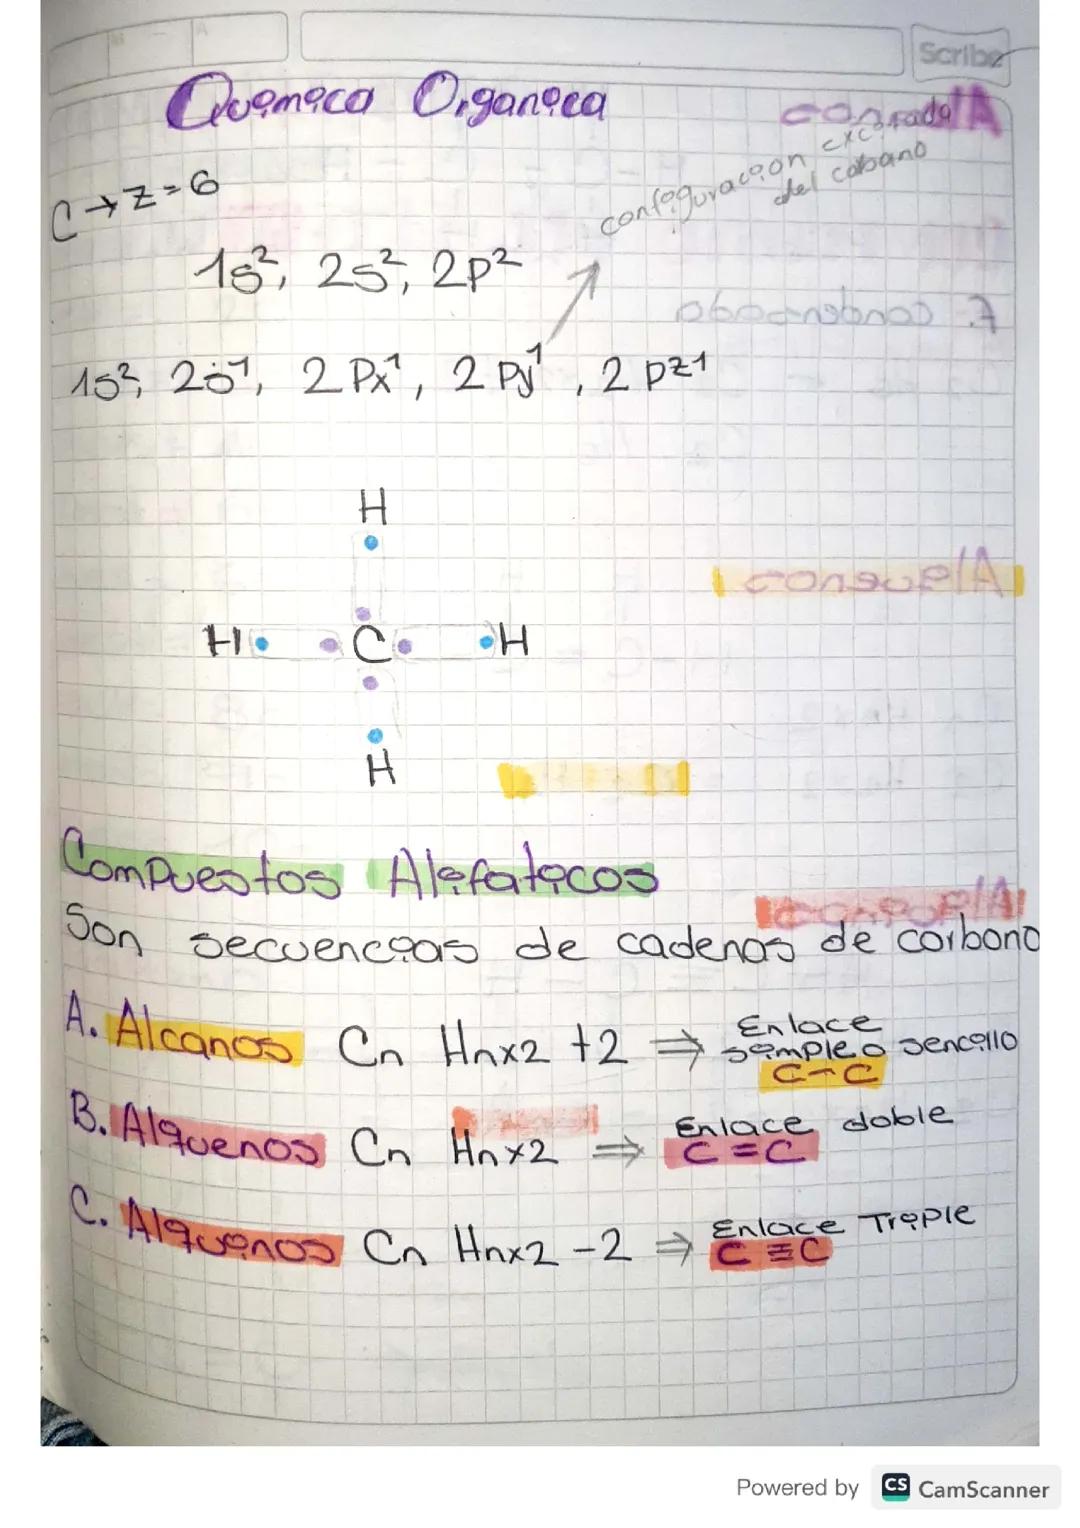 Scribe
Química Organica
C → Z = 6
configuracion excitada
del cabano
1s², 2s², 2p²
1s², 2s¹, 2Px¹, 2Py¹, 2pz1
H
H C H
H
Compuestos Alifaticos
Son secuencias de cadenas de carbono
A. Alcanos Cn Hnx2 +2 ⇒ Enlace simple o sencillo
C-C
B. Alquenos Cn Hnx2 ⇒ Enlace doble
C=C
C. Alquinos Cn Hnx2 -2 ⇒ Enlace Triple
C≡C
Powered by CS CamScanner